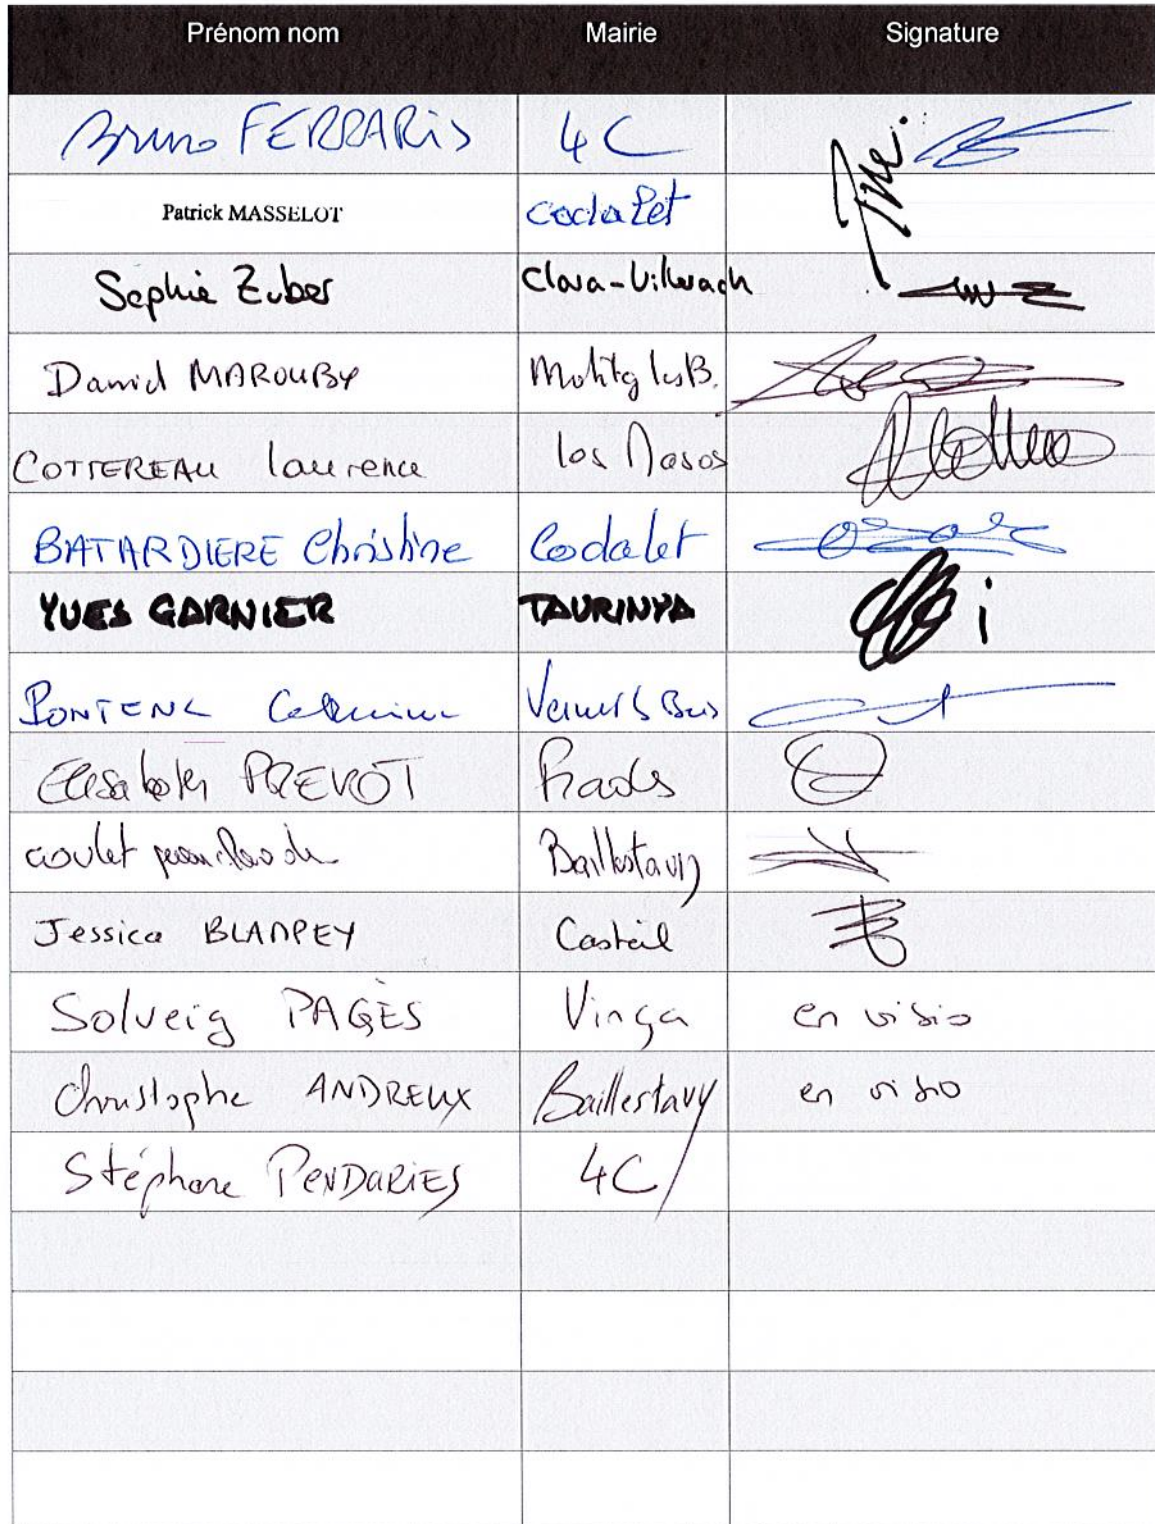 Prénom nom Mairie Signature
Bruno FERRARIS 4C
Patrick MASSELOT Codalet
Sophie Zuber Clara-Villerach
Daniel MAROUBY Molitg les B.
COTTEREAU laurence los Masos
BATARDIERE Christine Codalet
YVES GARNIER TAURINYA
Vernet les Bains
Elisabeth PREVOT Prades
coulet Baillestavy
Jessica BLANPEY Casteil
Solveig PAGÈS Vinça en visio
Christophe ANDREUX Baillestavy en visio
Stéphane PENDARIES 4C